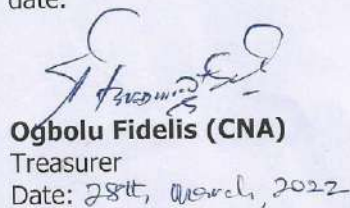 date:
Ogbolu Fidelis (CNA)
Treasurer
Date: 28th, March, 2022